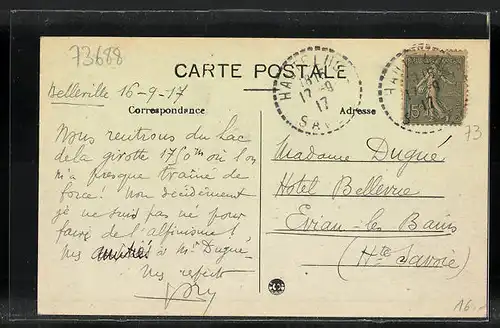 73688
CARTE POSTALE
HAUTELUCE
17-9
17
SAV
Belleville 16-9-17
Correspondance
Adresse
15
73
Nous rentrons du Lac
de la girotte 1750m où l'on
m'a presque traîné de
force! Non décidément
je ne suis pas né pour
faire de l'alpinisme!
Mes amitiés à Mr Dugué.
Mes respects
Madame Dugué
Hotel Bellevue
Evian-les Bains
(Hte Savoie)
16.-